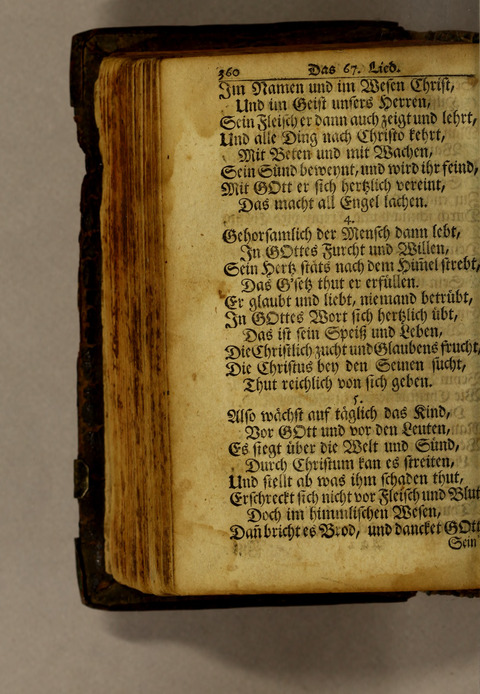 360 Das 67. Lied.
Im Namen und im Wesen Christ,
Und im Geist unsers Herren,
Sein Fleisch er dann auch zeigt und lehrt,
Und alle Ding nach Christo kehrt,
Mit Beten und mit Wachen,
Sein Sünd beweynt, und wird ihr feind,
Mit GOtt er sich hertzlich vereint,
Das macht all Engel lachen.
4.
Gehorsamlich der Mensch dann lebt,
In GOttes Furcht und Willen,
Sein Hertz stäts nach dem Him̃el strebt,
Das G'setz thut er erfüllen.
Er glaubt und liebt, niemand betrübt,
In GOttes Wort sich hertzlich übt,
Das ist sein Speiß und Leben,
Die Christlich zucht und Glaubens frucht,
Die Christus bey den Seinen sucht,
Thut reichlich von sich geben.
5.
Also wächst auf täglich das Kind,
Vor GOtt und vor den Leuten,
Es siegt über die Welt und Sünd,
Durch Christum kan es streiten,
Und stellt ab was ihm schaden thut,
Erschreckt sich nicht vor Fleisch und Blut
Doch im himmlischen Wesen,
Dañ bricht es Brod, und dancket GOtt
Sein